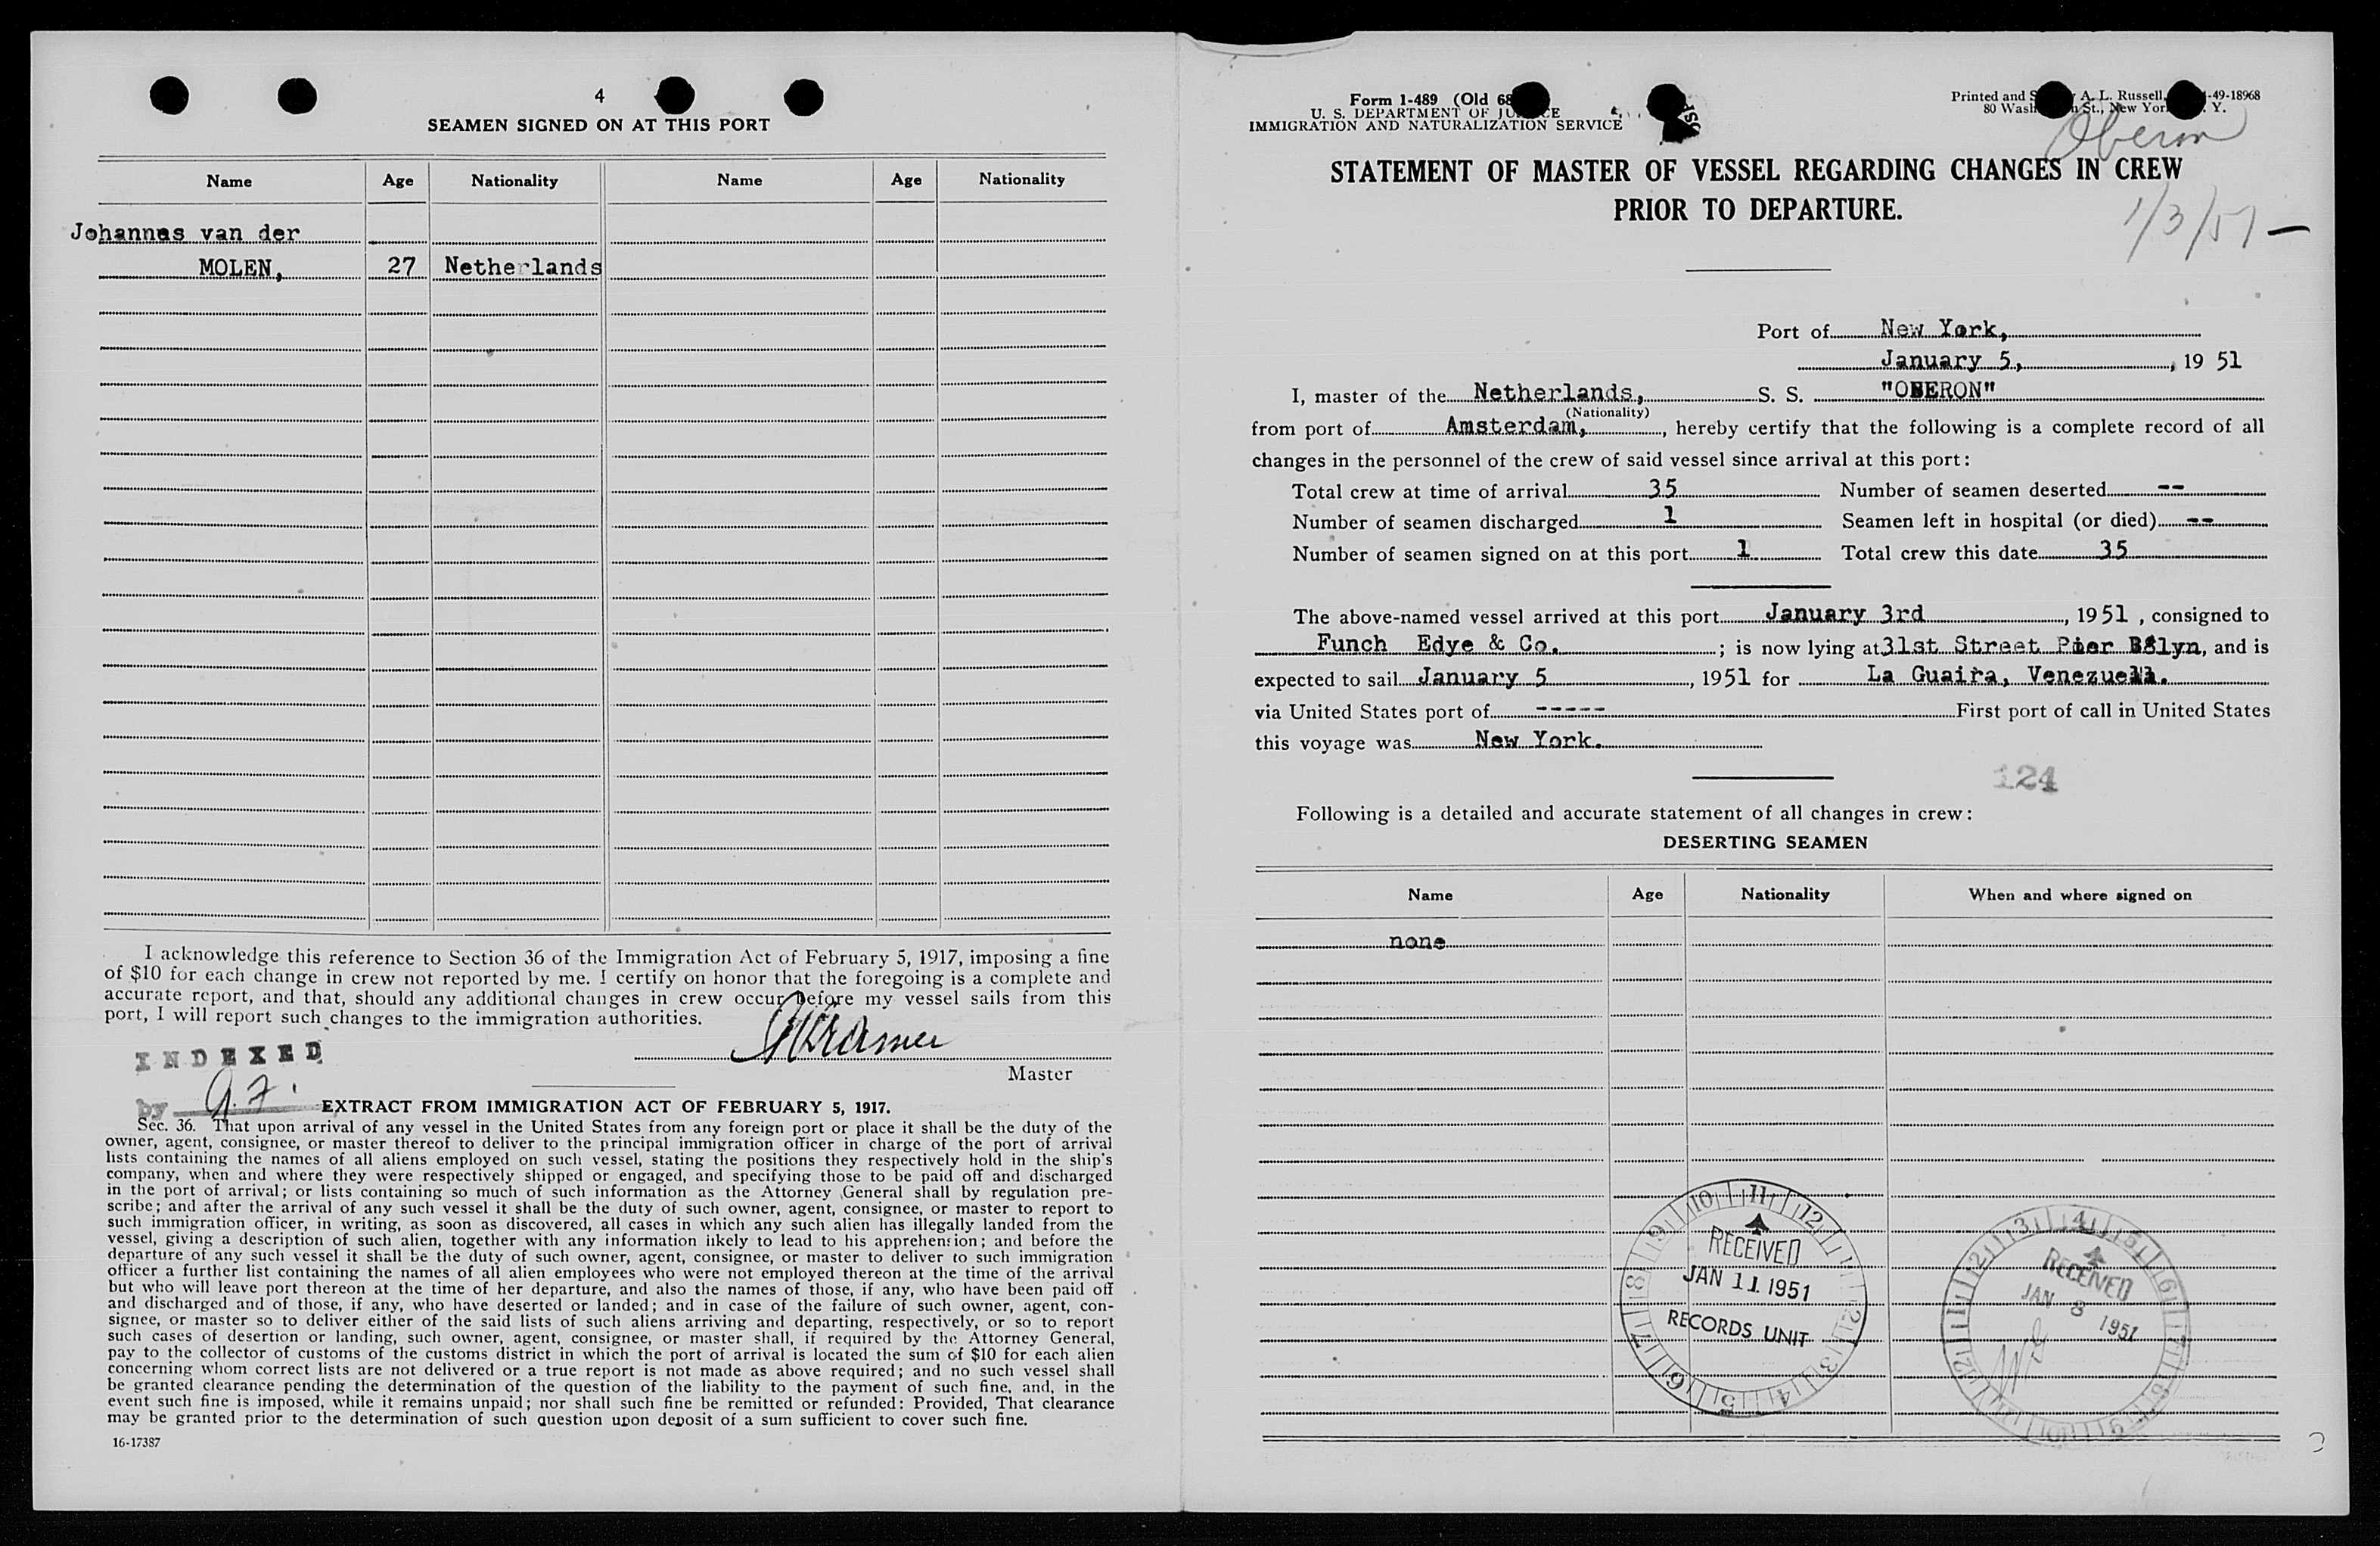 4
SEAMEN SIGNED ON AT THIS PORT
Name Age Nationality Name Age Nationality
Johannes van der
MOLEN, 27 Netherlands
I acknowledge this reference to Section 36 of the Immigration Act of February 5, 1917, imposing a fine
of $10 for each change in crew not reported by me. I certify on honor that the foregoing is a complete and
accurate report, and that, should any additional changes in crew occur before my vessel sails from this
port, I will report such changes to the immigration authorities.
INDEXED
Kramer
Master
by
EXTRACT FROM IMMIGRATION ACT OF FEBRUARY 5, 1917.
Sec. 36. That upon arrival of any vessel in the United States from any foreign port or place it shall be the duty of the
owner, agent, consignee, or master thereof to deliver to the principal immigration officer in charge of the port of arrival
lists containing the names of all aliens employed on such vessel, stating the positions they respectively hold in the ship's
company, when and where they were respectively shipped or engaged, and specifying those to be paid off and discharged
in the port of arrival; or lists containing so much of such information as the Attorney General shall by regulation pre-
scribe; and after the arrival of any such vessel it shall be the duty of such owner, agent, consignee, or master to report to
such immigration officer, in writing, as soon as discovered, all cases in which any such alien has illegally landed from the
vessel, giving a description of such alien, together with any information likely to lead to his apprehension; and before the
departure of any such vessel it shall be the duty of such owner, agent, consignee, or master to deliver to such immigration
officer a further list containing the names of all alien employees who were not employed thereon at the time of the arrival
but who will leave port thereon at the time of her departure, and also the names of those, if any, who have been paid off
and discharged and of those, if any, who have deserted or landed; and in case of the failure of such owner, agent, con-
signee, or master so to deliver either of the said lists of such aliens arriving and departing, respectively, or so to report
such cases of desertion or landing, such owner, agent, consignee, or master shall, if required by the Attorney General,
pay to the collector of customs of the customs district in which the port of arrival is located the sum of $10 for each alien
concerning whom correct lists are not delivered or a true report is not made as above required; and no such vessel shall
be granted clearance pending the determination of the question of the liability to the payment of such fine, and, in the
event such fine is imposed, while it remains unpaid; nor shall such fine be remitted or refunded: Provided, That clearance
may be granted prior to the determination of such question upon deposit of a sum sufficient to cover such fine.
16-17387
Form 1-489 (Old 68
U. S. DEPARTMENT OF JUSTICE
IMMIGRATION AND NATURALIZATION SERVICE
Printed and A. L. Russell, -49-18968
80 Wash St., New York Y.
Oberon
STATEMENT OF MASTER OF VESSEL REGARDING CHANGES IN CREW
PRIOR TO DEPARTURE.
1/3/51 -
Port of New York,
January 5, , 19 51
I, master of the Netherlands, S. S. "OBERON"
(Nationality)
from port of Amsterdam, , hereby certify that the following is a complete record of all
changes in the personnel of the crew of said vessel since arrival at this port:
Total crew at time of arrival 35 Number of seamen deserted --
Number of seamen discharged 1 Seamen left in hospital (or died) --
Number of seamen signed on at this port 1 Total crew this date 35
The above-named vessel arrived at this port January 3rd , 1951 , consigned to
Funch Edye & Co. ; is now lying at 31st Street Pier Bklyn, and is
expected to sail January 5 , 1951 for La Guaira, Venezuela.
via United States port of ----- First port of call in United States
this voyage was New York.
124
Following is a detailed and accurate statement of all changes in crew:
DESERTING SEAMEN
Name Age Nationality When and where signed on
none
RECEIVED
JAN 11 1951
RECORDS UNIT
RECEIVED
JAN 8 1951